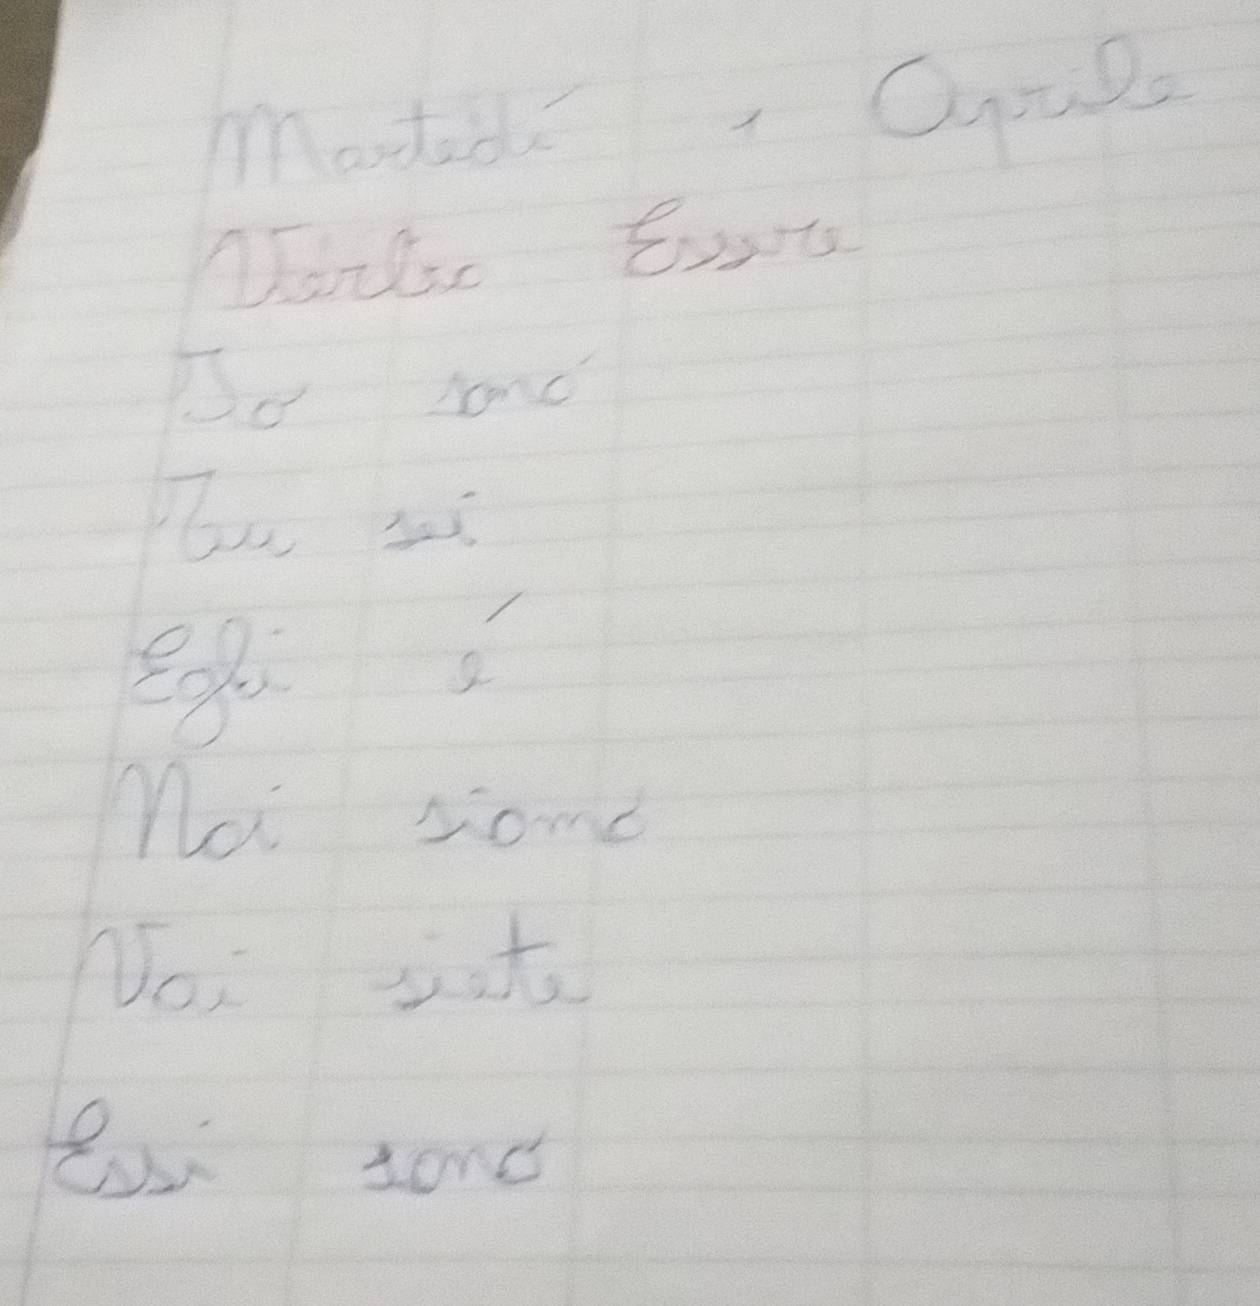 Martedí 1 Aprile
Verbo Essere
Io sono
Tu sei
Egli é
Noi siamo
Voi siete
Essi sono